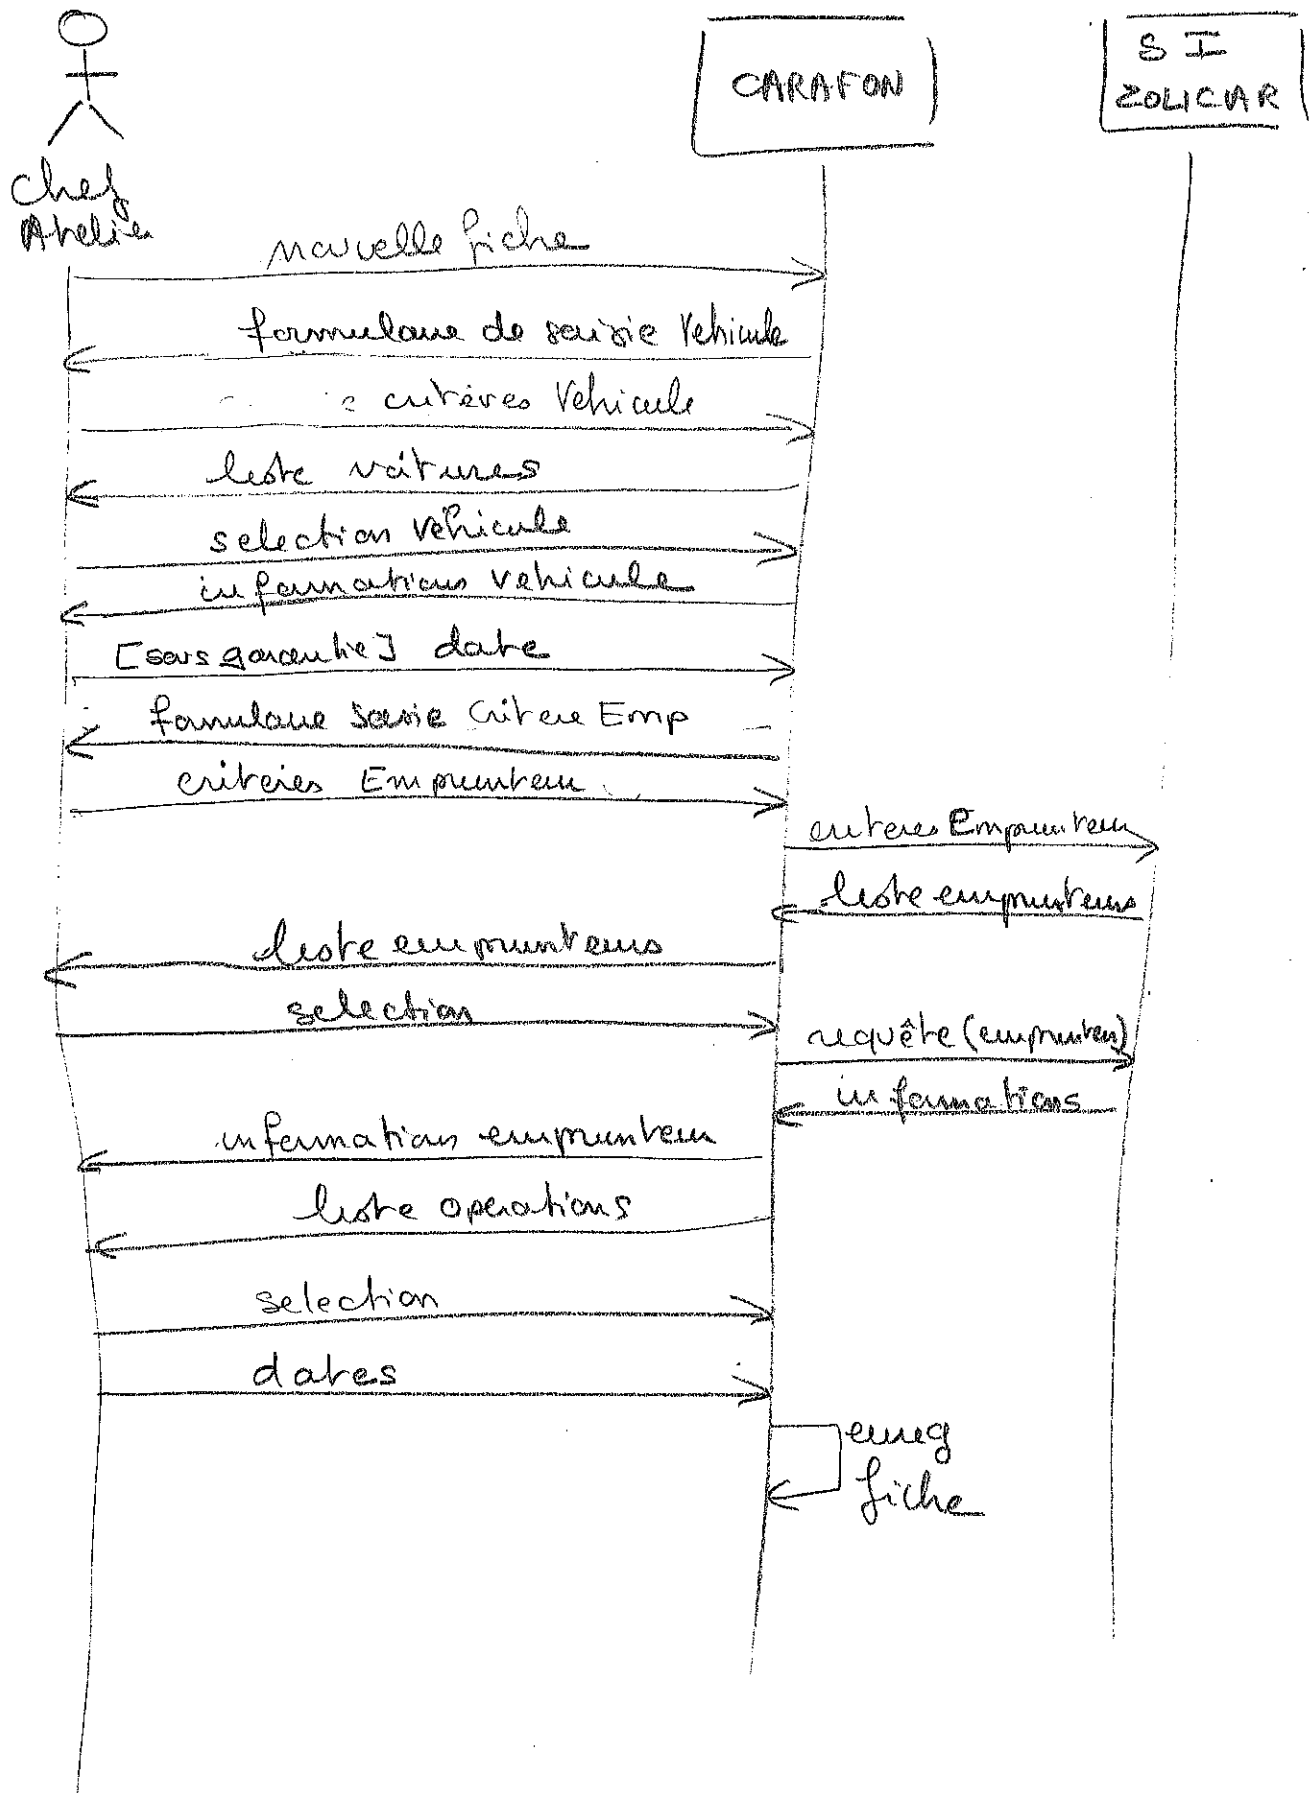 CARAFON
S I
ZOLICAR
Chef
Atelier
nouvelle fiche
formulaire de saisie Vehicule
critères Vehicule
liste voitures
selection Véhicule
informations vehicule
[sous garantie] date
formulaire saisie Critere Emp
criteres Emprunteur
criteres Emprunteur
liste emprunteurs
liste emprunteurs
selection
requête (emprunteur)
informations
informations emprunteur
liste operations
selection
dates
enreg
fiche